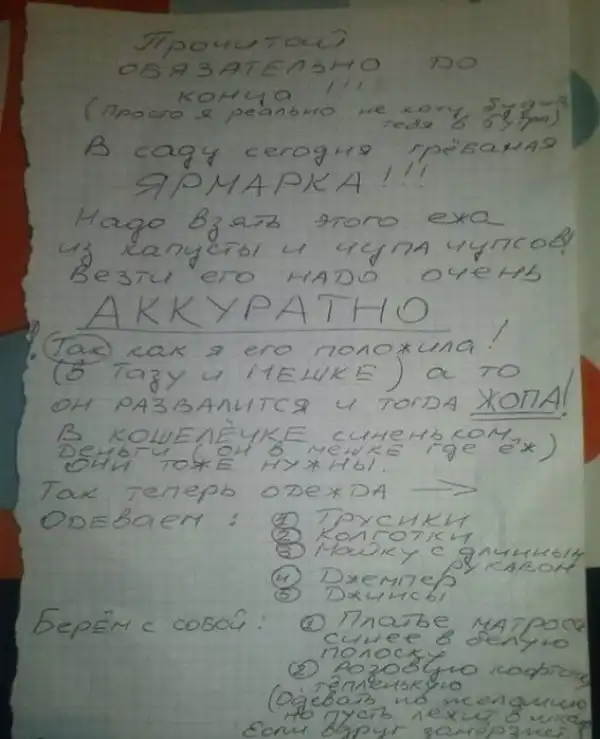 Прочитай
ОБЯЗАТЕЛЬНО ДО
КОНЦА !!!
(Просто я реально не хочу будить
тебя в 6 утра)
В саду сегодня грёбаная
ЯРМАРКА!!!
Надо взять этого ежа
из капусты и чупа чупсов!
Везти его НАДО очень
АККУРАТНО
! Так как я его положила!
(В тазу и МЕШКЕ) а то
он РАЗВАЛИТСЯ и тогда ЖОПА!
В КОШЕЛЁЧКЕ синеньком
деньги (он в мешке где ёж)
они тоже нужны.
Так теперь одежда →
Одеваем: ① Трусики
② Колготки
③ Майку с длинным
рукавом
④ Джемпер
⑤ Джинсы
Берём с собой: ① Платье матроса
синее в белую
полоску
② розовую кофточку
тёпленькую
(Одевать по желанию
но пусть лежит в шкафу
Если вдруг замёрзнет)